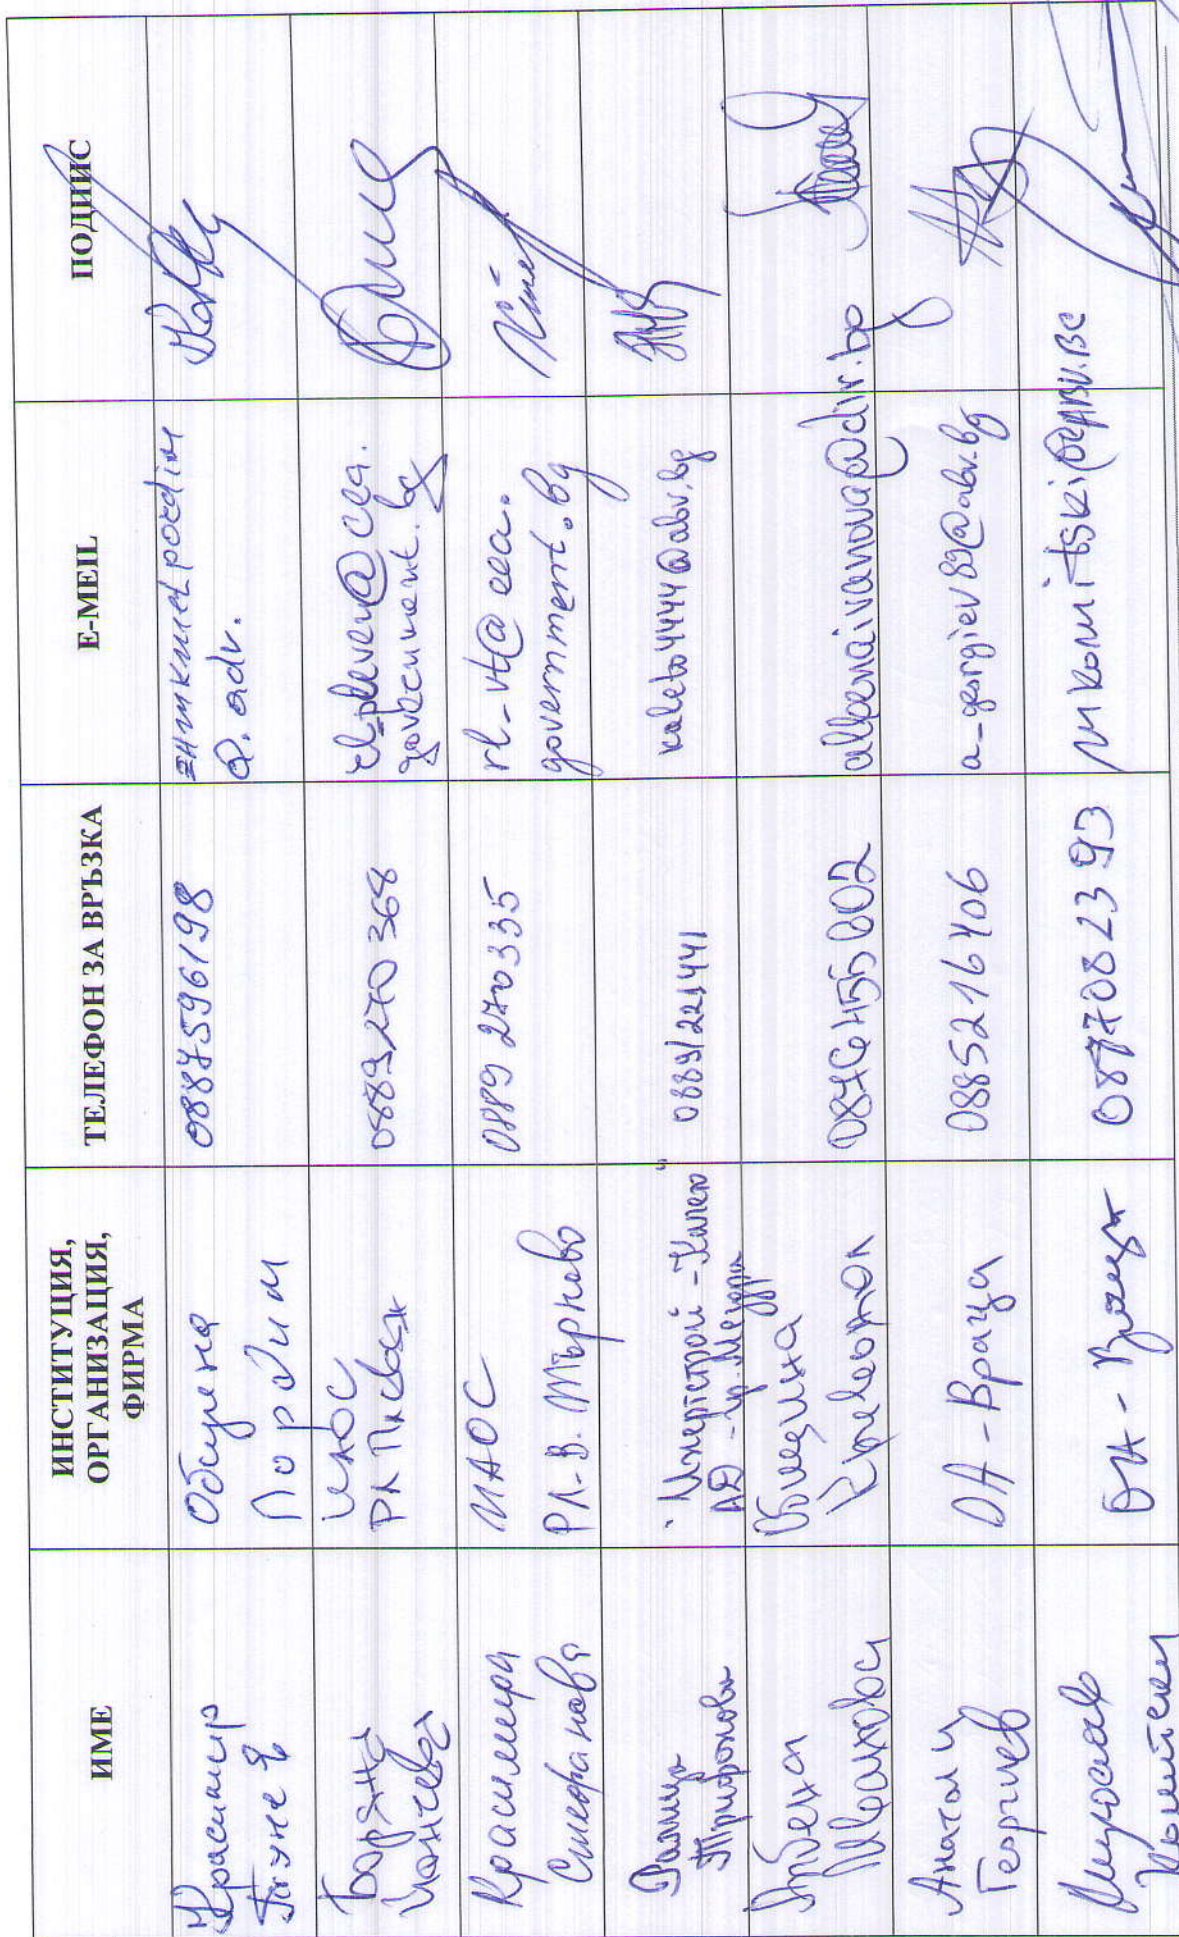 ИМЕ
ИНСТИТУЦИЯ,
ОРГАНИЗАЦИЯ,
ФИРМА
ТЕЛЕФОН ЗА ВРЪЗКА
E-MEIL
ПОДПИС
Красимир
Община
Пордим
0887596198
Боряна
Цончева
ИАОС
РЛ Плевен
0889270368
rl_pleven@eea.
government.bg
Красимира
Стефанова
ИАОС
РЛ-В. Търново
0889 270335
rl-vt@eea.
government.bg
Ралица
Трифонова
"Инертстрой-Калето"
АД -гр. Мездра
0889/221441
kaleto4444@abv.bg
Албена
Иванова
Община
Криводол
0876455202
albenaivanova@dir.bg
Анатоли
Георгиев
ОА-Враца
0885216406
a_georgiev89@abv.bg
ОА - Враца
0877082393
mkomitski@ABV.BG